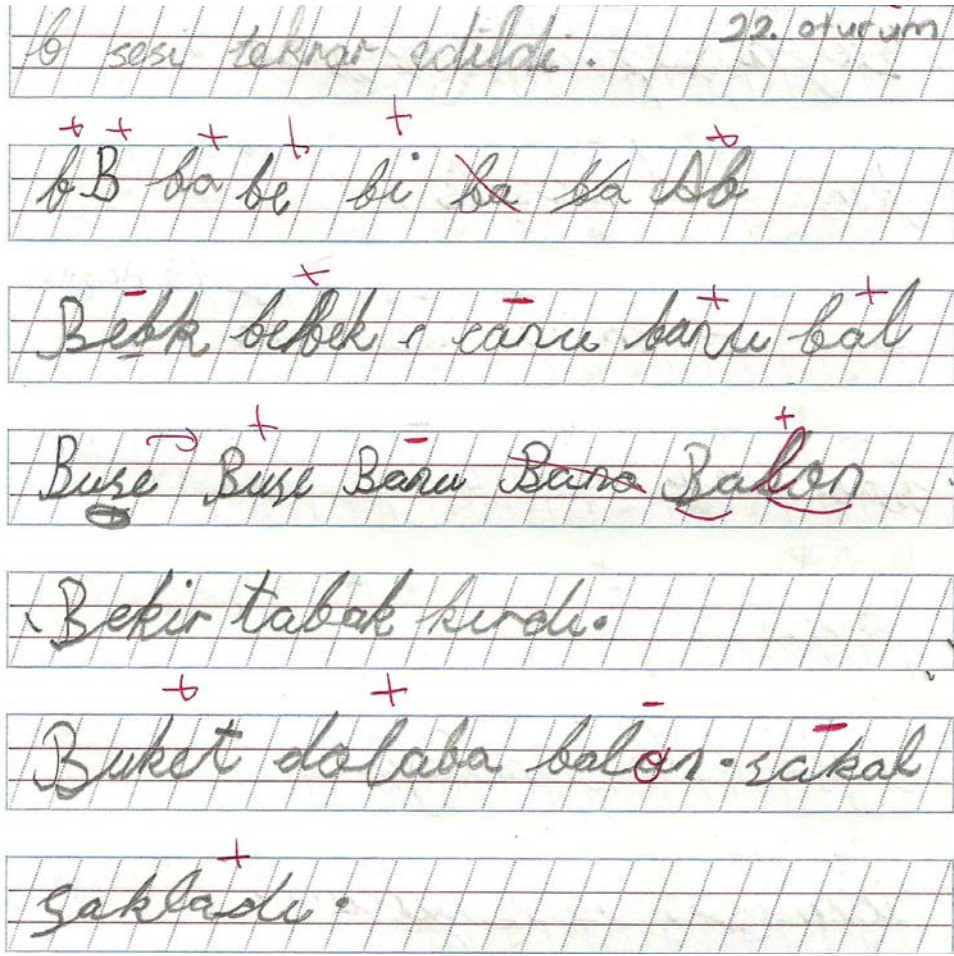 22. oturum
b sesi tekrar edildi.
b B ba be bi ba ba Ab
Bebk bebek canu banu bal
Buse Buse Banu Bana Balon
Bekir tabak kırdı.
Buket dolaba balon sakal
sakladı.